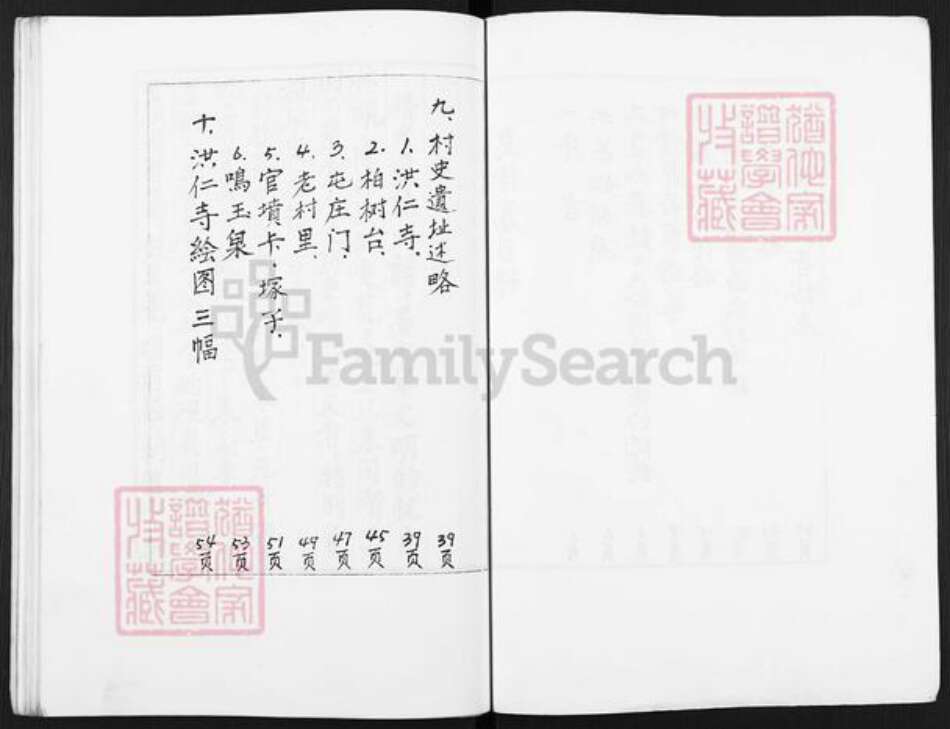 九、村史遺址述略 39页
1.洪仁寺. 39页
2.柏树台. 45页
3.屯庄门. 47页
4.老村里. 49页
5.官墳卡.塚子. 51页
6.鳴玉泉 53页
十、洪仁寺絵图三幅 54页
譜學會
收藏
譜學會
收藏
FamilySearch